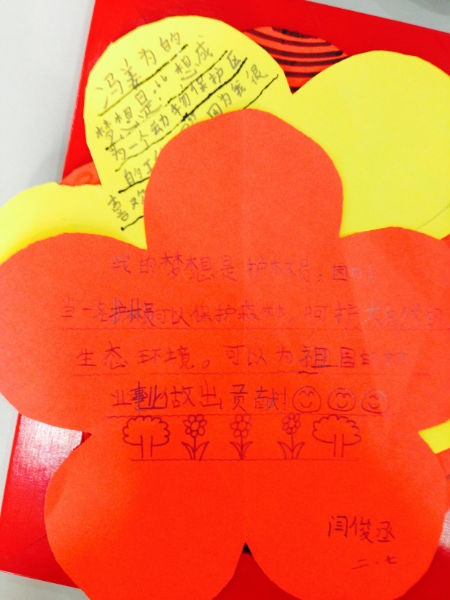 冯美为的
梦想是：“想成
为一个动物保护区
的工
因为会很
喜
我的梦想是护林员，因
当一名护林员可以保护森林，呵护大自然的
生态环境。可以为祖国的林
业事业做出贡献！
闫俊丞
二·七